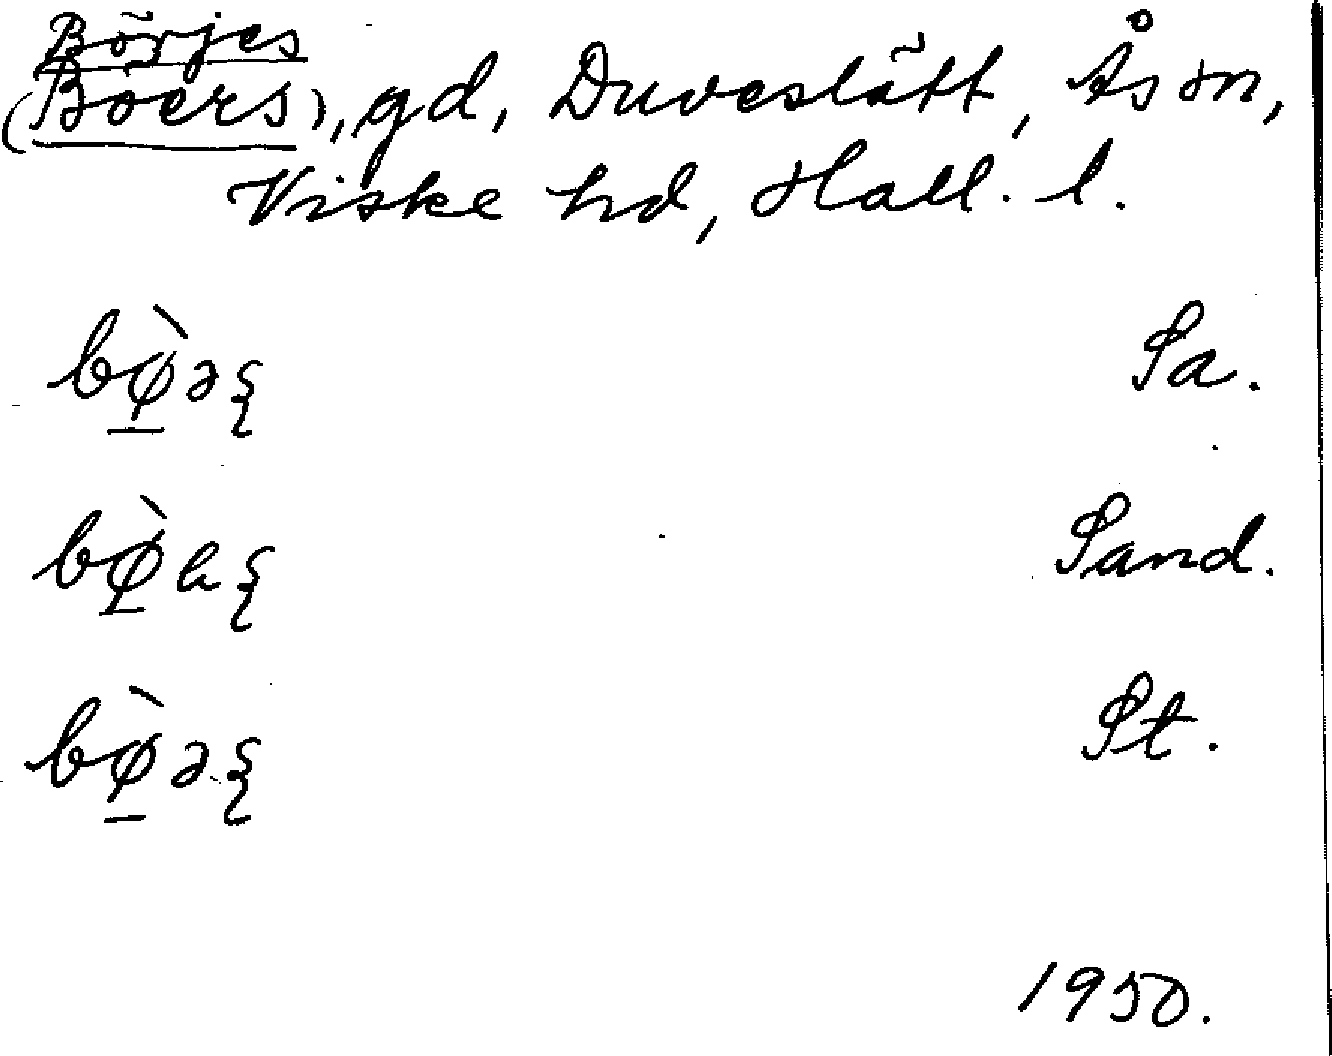 Börjes
(Böers), gd, Duveslätt, Ås sn,
Viske hd, Hall. l.
bø̱̀əʂ Sa.
bø̱̀aʂ Sand.
bø̱̀əʂ St.
1950.